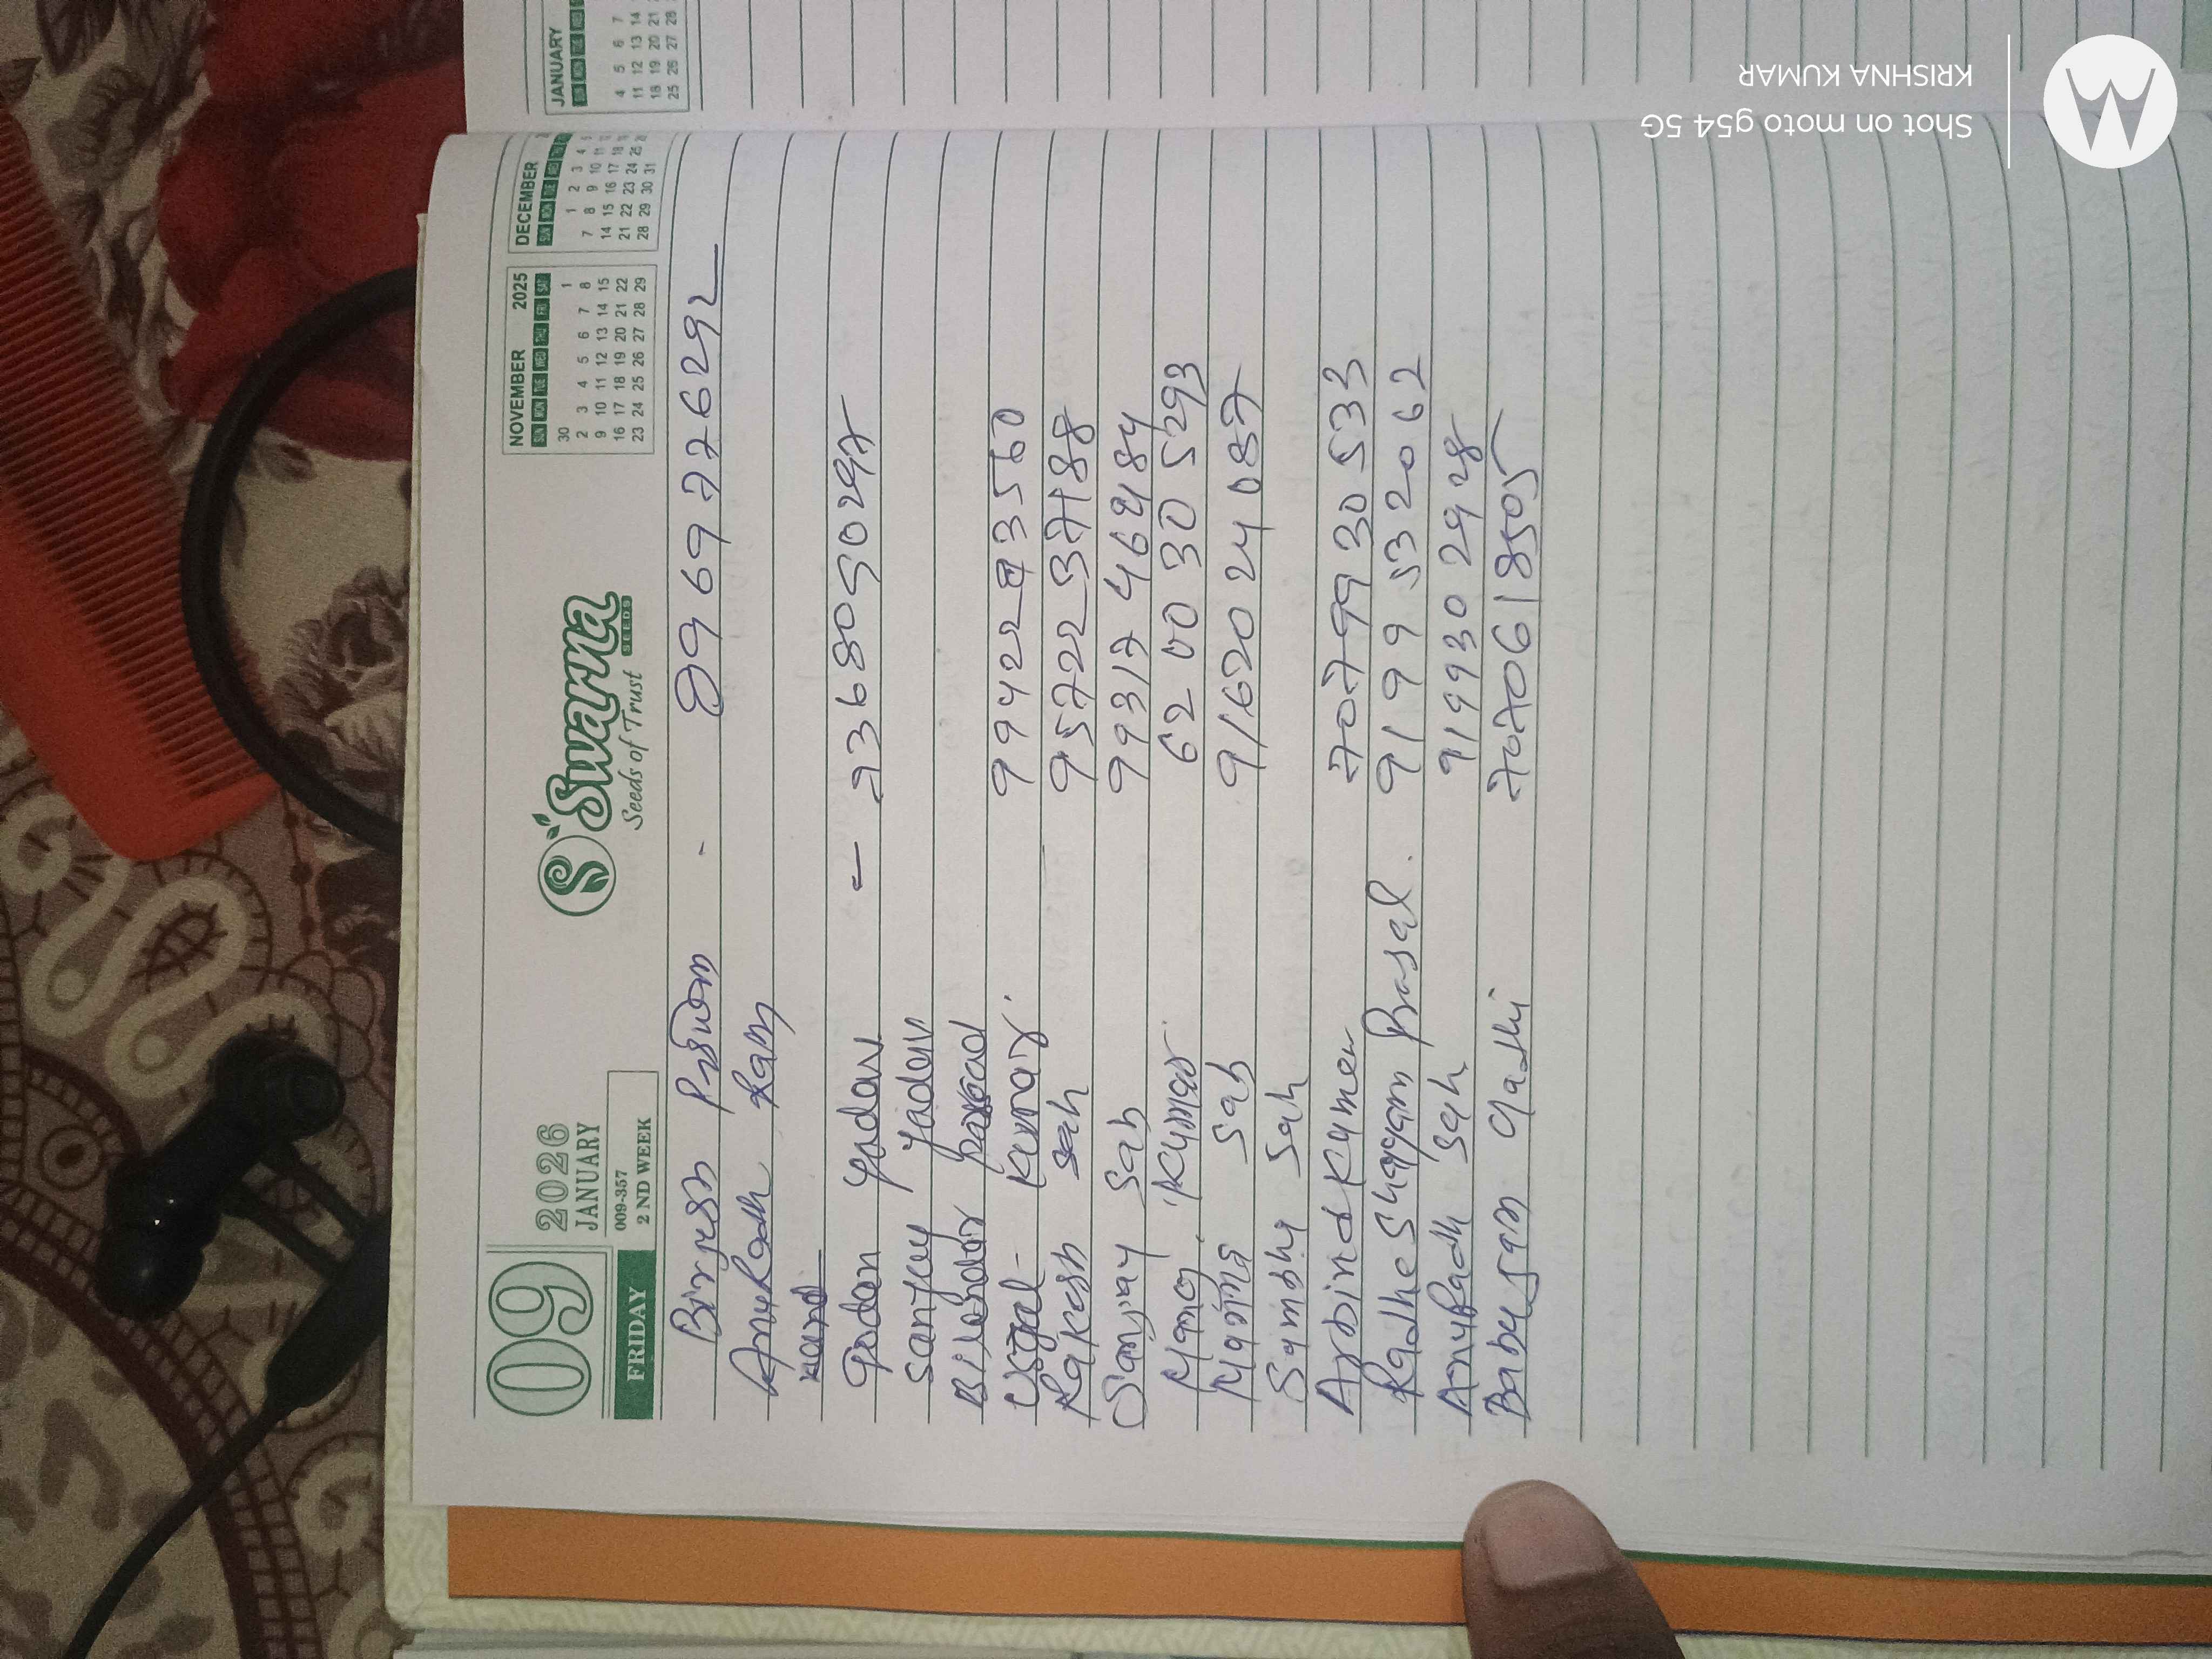 JANUARY
SUN MON TUE WED
4 5 6 7
11 12 13 14
18 19 20 21
25 26 27 28
09
2026
JANUARY
FRIDAY
009-357
2 ND WEEK
Swarna
SEEDS
Seeds of Trust
NOVEMBER 2025
SUN MON TUE WED THU FRI SAT
30 1
2 3 4 5 6 7 8
9 10 11 12 13 14 15
16 17 18 19 20 21 22
23 24 25 26 27 28 29
DECEMBER
SUN MON TUE WED
1 2 3 4
7 8 9 10 11
14 15 16 17 18
21 22 23 24 25
28 29 30 31
- 8969776292
Ram
yadav - 7368050297
Sanjay yadav
Kumar 
Rakesh Sah 9572237188
Sanjay Sah 9931746484
Manoj Kumar 6200305293
Sah 9162024087
Sambhu Sah
Arbind Kumar 7079930533
Radhe Shayyam Prasad . 9199532062
Anuradh Sah 9199302928
Babujan 7070618505
Shot on moto g54 5G
KRISHNA KUMAR